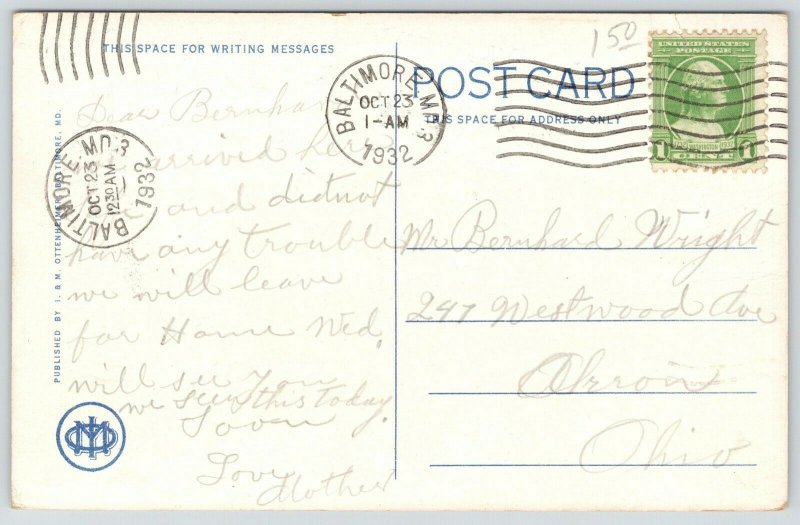 THIS SPACE FOR WRITING MESSAGES
POST CARD
THIS SPACE FOR ADDRESS ONLY
150
UNITED STATES
POSTAGE
1732 WASHINGTON 1932
1 CENT 1
BALTIMORE, MD. 3
OCT 23
1-AM
1932
BALTIMORE, MD. 3
OCT 23
12 30 AM
1932
PUBLISHED BY I. & M. OTTENHEIMER, BALTIMORE, MD.
Dear Bernhard
arrived here
and did not
have any trouble
we will leave
for Home Wed.
will see you
we seen this today.
Soon
Love
Mother
Mr Bernhard Wright
247 Westwood Ave
Akron
Ohio